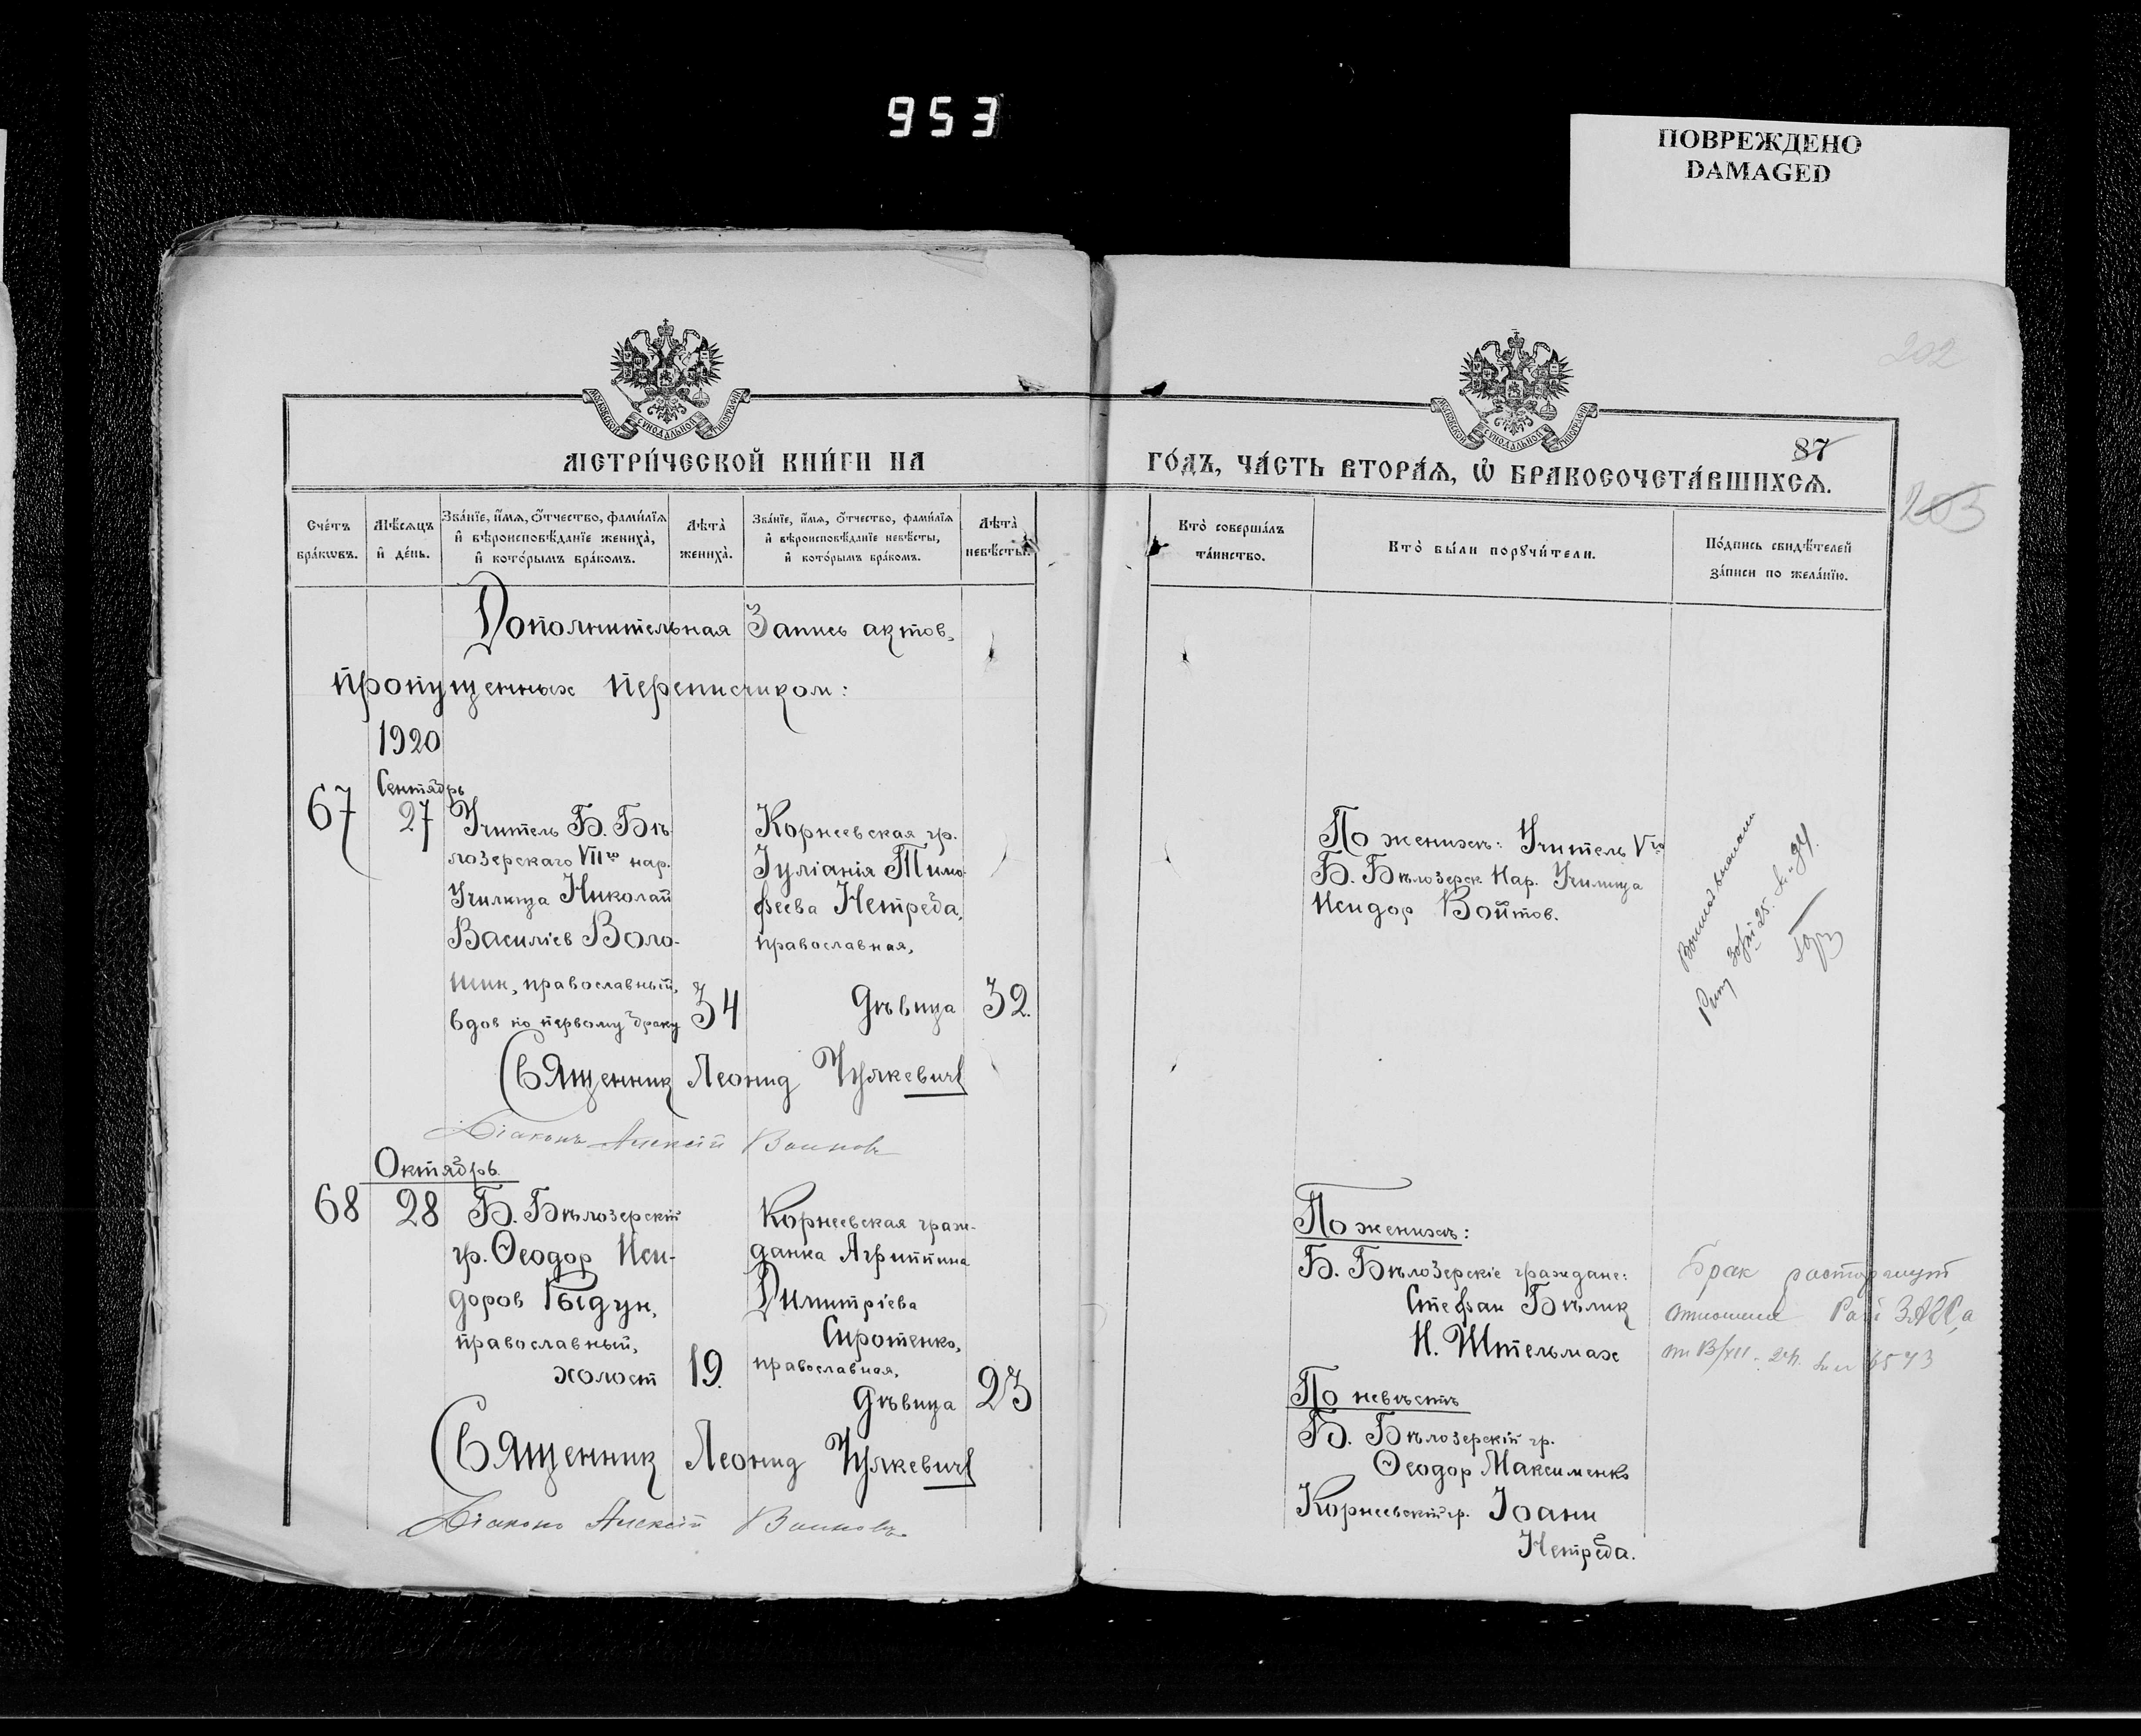 953
ПОВРЕЖДЕНО
DAMAGED
202
87
203
МЕТРИ́ЧЕСКОЙ КНИ́ГИ НА
ГО́ДЪ, ЧА́СТЬ ВТОРА́Ѧ, Ѡ҆ БРАКОСОЧЕТА́ВШИХСѦ.
Сче́тъ бра́кωвъ.
Мѣ́сяцъ и҆ де́нь.
Зва́нїе, и҆́мѧ, ѻ҆́тчество, фами́лїѧ и҆ вѣроисповѣ́данїе жениха̀, и҆ кото́рымъ бра́комъ.
Лѣ́та жениха̀.
Зва́нїе, и҆́мѧ, ѻ҆́тчество, фами́лїѧ и҆ вѣроисповѣ́данїе невѣ́сты, и҆ кото́рымъ бра́комъ.
Лѣ́та невѣ́сты.
Кто̀ соверша́лъ та́инство.
Кто̀ бы́ли порꙋчи́тели.
По́дпись свидѣ́телей за́писи по жела́нїю.
Дополнительная Запись актов,
пропущенных переписчиком:
1920
Сентябрь
67
27
Учитель Б. Бѣ-
лозерскаго VIIго нар.
Училища Николай
Василіев Воло-
шин, православный,
вдов по первому браку
34
Корнеевская гр.
Іуліанія Тимо-
феева Нетреба,
православная,
дѣвица
32.
По женихѣ: Учитель Vго
Б. Бѣлозерск. Нар. Училища
Исидор Войтов.
Священник Леонид
Діаконъ Алексій Воиновъ
Октябрь.
68
28
Б. Бѣлозерскій
гр. Ѳеодор Иси-
доров Гыдун,
православный,
холост
19.
Корнеевская граж-
данка Агриппина
Димитріева
Сиротенко,
православная,
дѣвица
23
По женихѣ:
Б. Бѣлозерскіе граждане:
Стефан Бѣлик
Н. Штельмах
По невѣстѣ
Б. Бѣлозерскій гр.
Ѳеодор Максименко
Корнеевскій гр. Іоанн
Нетреба.
Брак расторгнут
Священник Леонид
Діаконъ Алексій Воиновъ